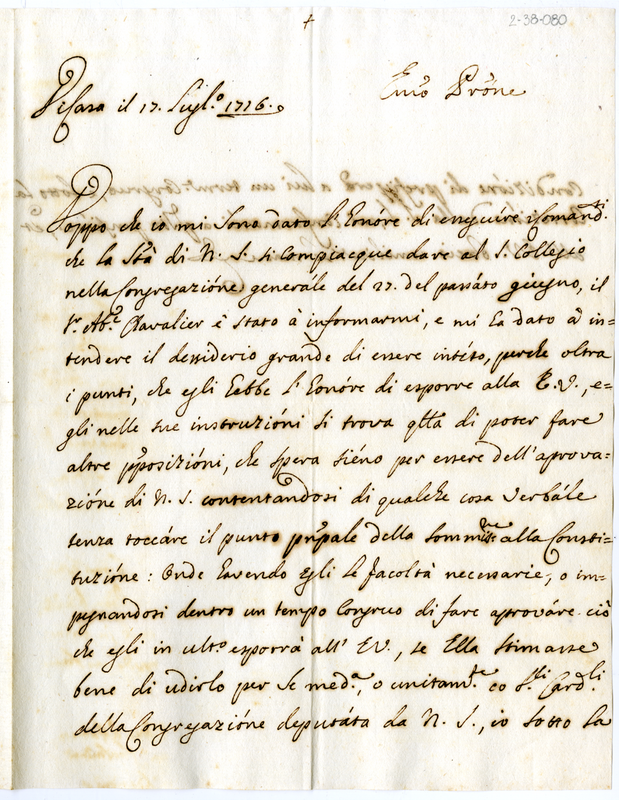 2-38-080
+
Emo Prone
Di Casa il 17. Lugl.o 1716.
Doppo che io mi sono dato l'honóre di eneguire i Comand.ti
che la Stà di N. S. si compiacque dare al S. Collegio
nella Congregazióne generále del 27. del passáto giugno, il
Sr. Ab.e Chavalier é stato à informarmi, e mi ha dato à in=
tendere il dessiderio grande di essere intéso, perche oltra
i punti, che egli hebbe l'honóre di esporre alla E.V., e=
gli nelle sue instruzióni si trova qlla di poter fare
altre pposizióni, che spera siéno per essere dell'aprova=
zióne di N. S. contentandosi di qualche cosa verbále
senza toccáre il punto prnpale della sommis.ne alla Consti=
tuzióne: Onde havendo egli le facoltà necessarie, o im=
pegnandosi dentro un tempo congruo di fare aprováre ciò
che egli in ult.o esporrà all' EV., se Ella stimasse
bene di udirlo per se med.a, o unitam.te co s.li Card.li
della Congregazióne deputáta da N. S., io sotto la